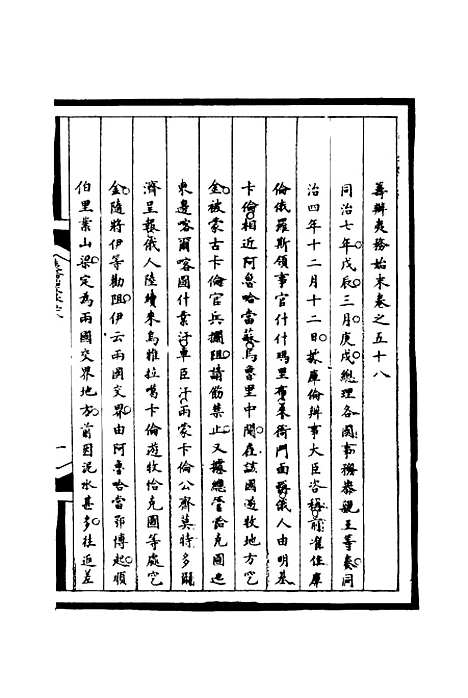 籌辦夷務始末卷之五十八
同治七年戊辰三月庚戌總理各國事務恭親王等奏同
治四年十二月十二日據庫倫辦事大臣咨稱前准住庫
倫俄羅斯領事官什什瑪里布來衙門面稱俄人由明基
卡倫相近阿魯哈當蘇烏魯里中間在該國遊牧地方挖
金被蒙古卡倫官兵攔阻請筋禁止又據總管恰克圖迤
東邊喀爾喀圖什業汗車臣汗兩蒙卡倫公齊莫特多爾
濟呈報俄人陸續來烏雅拉噶卡倫遊牧恰克圖等處挖
金隨將伊等勸阻伊云兩國交界由阿魯哈當鄂博起順
伯里業山梁定為兩國交界地方前因泥水甚多往返差